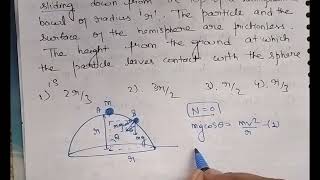 sliding down from the top of a
bowl of radius 'r'. The particle and the
surface of the hemisphere are frictionless.
The height from the ground at which
the particle leaves contact with the sphere
is
1) 2r/3 2). 3r/2 3). r/3 4). r/2
N = 0
mgcosθ = mv²/r - (1)
A m B
r r θ mg
r